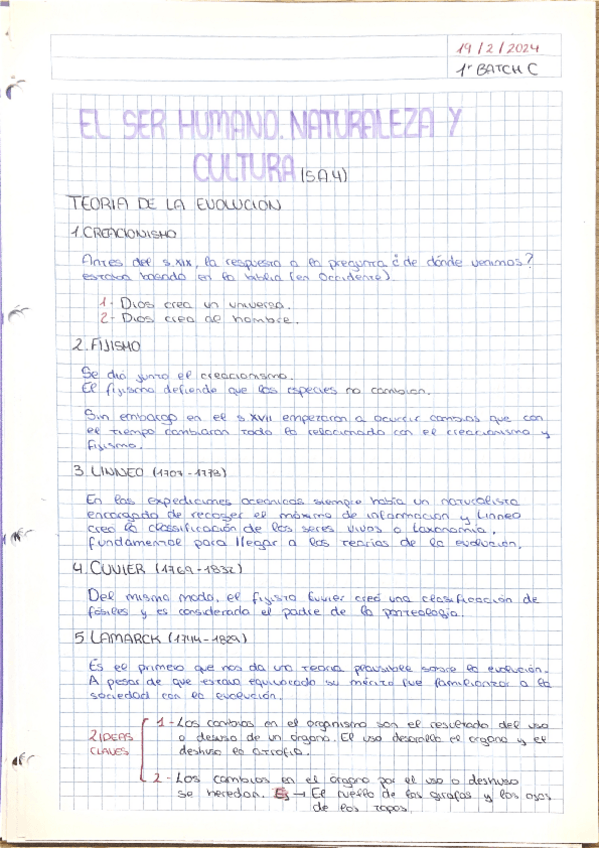 19/2/2024
1º BATCH C
EL SER HUMANO. NATURALEZA Y
CULTURA (SA.4)
TEORIA DE LA EVOLUCIÓN
1. CREACIONISMO
Antes del s.XIX, la respuesta a la pregunta ¿de dónde venimos?
estaba basada en la biblia (en Occidente).
1- Dios crea un universo.
2- Dios crea al hombre.
2. FIJISMO
Se dió junto el creacionismo.
El fijismo defiende que las especies no cambian.
Sin embargo en el s.XVII empezaron a ocurrir cambios que con
el tiempo cambiaron todo lo relacionado con el creacionismo y
fijismo.
3. LINNEO (1707-1778)
En las expediciones oceánicas siempre había un naturalista
encargado de recoger el máximo de información y Linneo
creo la classificación de los seres vivos o taxonomia,
fundamental para llegar a las teorias de la evolución.
4. CUVIER (1769-1832)
Del mismo modo, el fijista Cuvier creó una clasificación de
fósiles y es considerado el padre de la
5. LAMARCK (1744-1829)
Es el primero que nos da una teoria plausible sobre la evolución.
A pesar de que estaba equivocado su mérito fue familiarizar a la
sociedad con la evolución.
2 IDEAS
CLAVES
1- Los cambios en el organismo son el resultado del uso
o desuso de un órgano. El uso desarrolla el organo y el
deshuso lo atrofia.
2- Los cambios en el órgano por el uso o deshuso
se heredan. Ej → El cuello de las girafas y los ojos
de los topos.